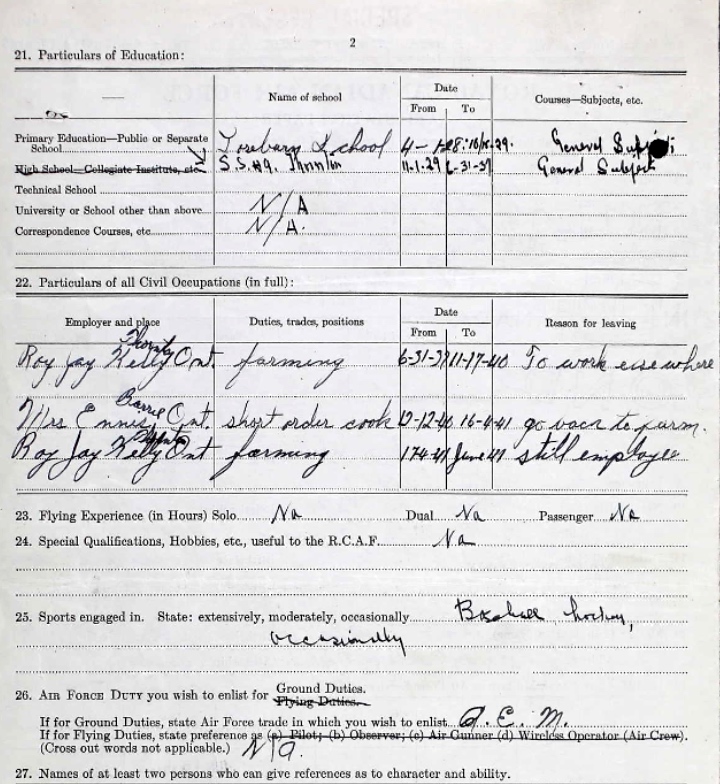 2
21. Particulars of Education:
Name of school
Date
From To
Courses—Subjects, etc.
Primary Education—Public or Separate
School 4- General
High School—Collegiate Institute, etc. S.S.#9. 11-1-29 6-31-37 General Subjects
Technical School
University or School other than above N/A
Correspondence Courses, etc. N/A.
22. Particulars of all Civil Occupations (in full):
Employer and place
Duties, trades, positions
Date
From To
Reason for leaving
Roy Jay Kelly Ont. farming 6-31-37 11-17-40 To work elsewhere
Mrs Ennis Barrie Ont. short order cook 16-4-41 go back to farm.
Roy Jay Kelly Ont farming June 41 still employee
23. Flying Experience (in Hours) Solo Na Dual Na Passenger Na
24. Special Qualifications, Hobbies, etc., useful to the R.C.A.F. Na
25. Sports engaged in. State: extensively, moderately, occasionally Baseball hockey,
occasionally
26. Air Force Duty you wish to enlist for Ground Duties.
Flying Duties.
If for Ground Duties, state Air Force trade in which you wish to enlist A.E.M.
If for Flying Duties, state preference as (a) Pilot; (b) Observer; (c) Air Gunner (d) Wireless Operator (Air Crew).
(Cross out words not applicable.) N/A.
27. Names of at least two persons who can give references as to character and ability.